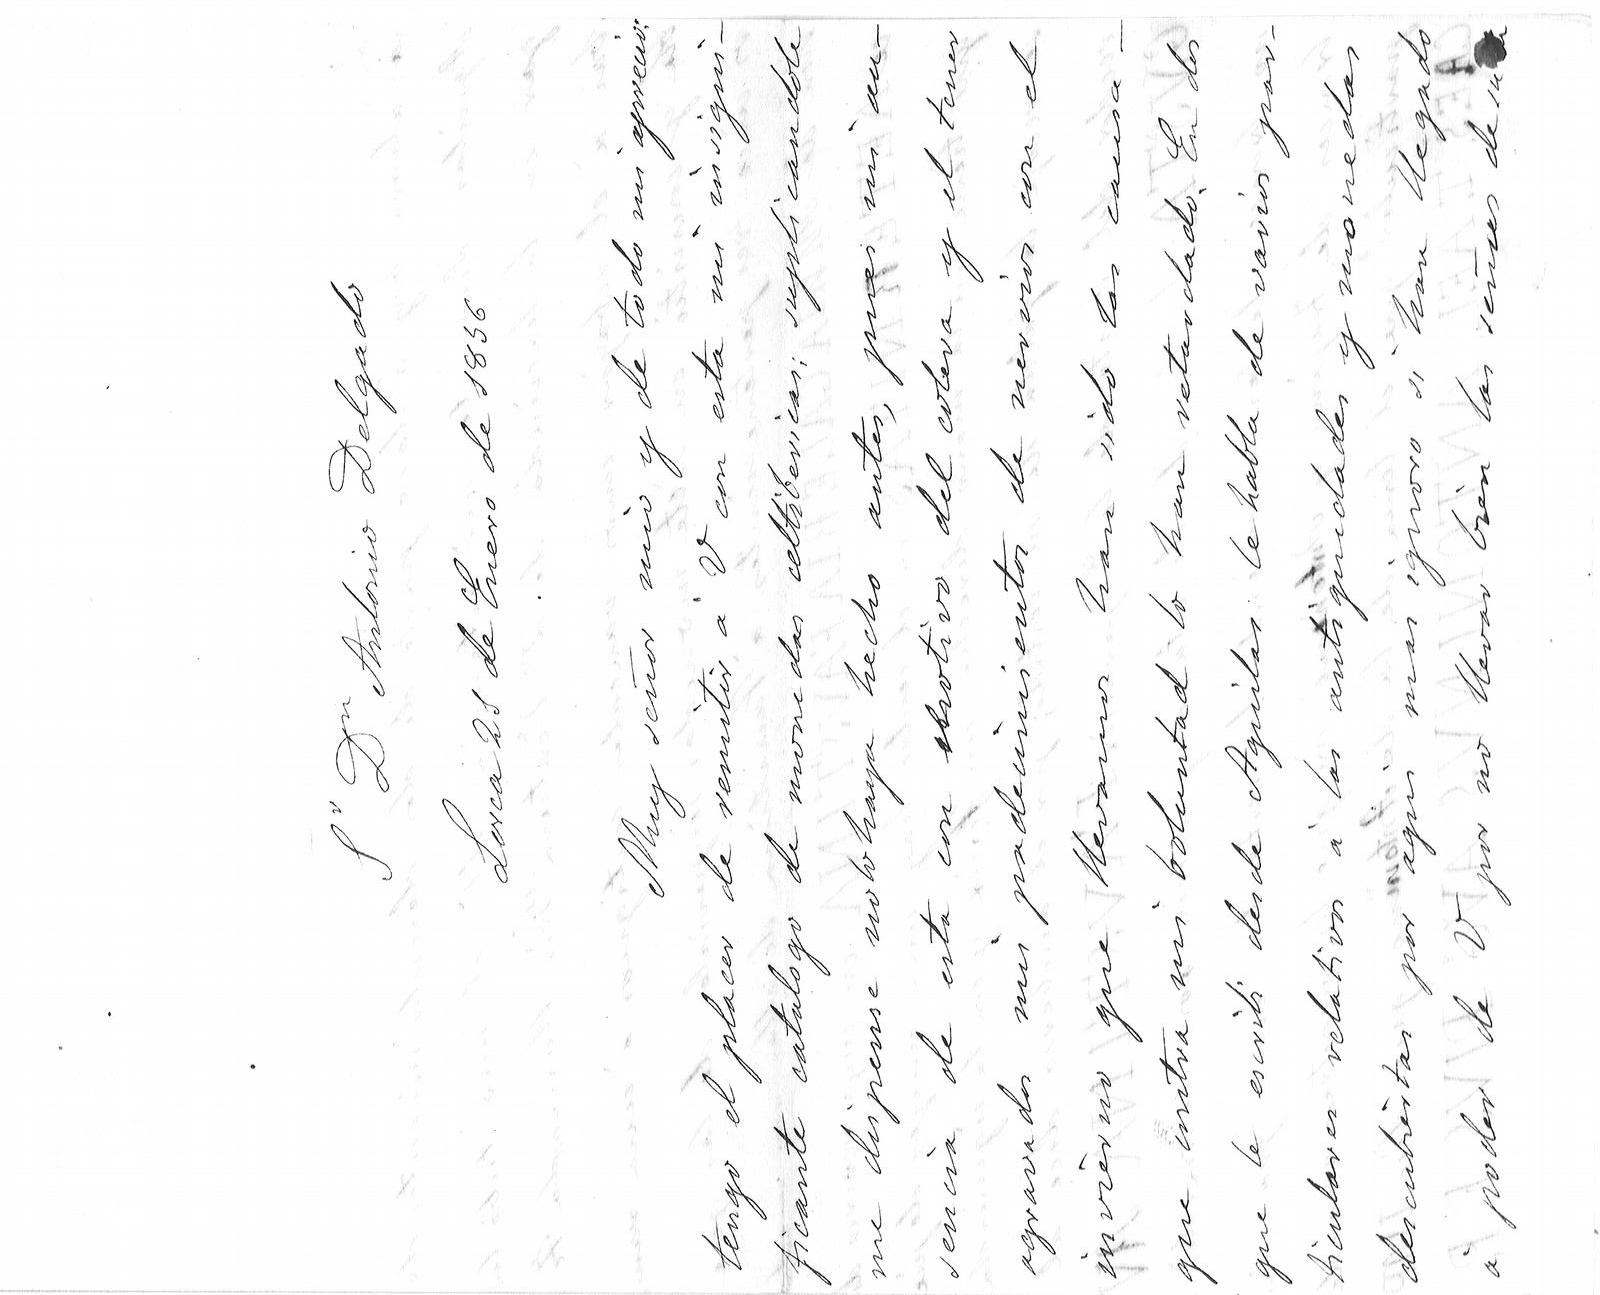 Sr Dn Antonio Delgado
Lorca 25 de Enero de 1856
Muy señor mio y de todo mi aprecio:
tengo el placer de remitir á V con esta mi insigni-
ficante catalogo de monedas celtibericas; suplicandole
me dispense nolohaya hecho antes, pues mi au-
sencia de esta con motivo del colera y el tener
agravados mis padecimientos de nervios con el
invierno que llevamos han sido las causa-
que contra mi boluntad lo han retardado. En dos
que le escriti desde Aguilas le habla de varios par-
ticulares relativos á las antiguedades y monedas
descubiertas por aqui mas ignoro si han llegado
á poder de V por no llevar bien las señas de su